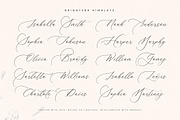 Isabella Smith Noah Anderson
Sophia Johnson Harper Murphy
Olivia Brandy William Evans
Isabella Williams Isabella Lewis
Charlotte Davis Sophia Martinez